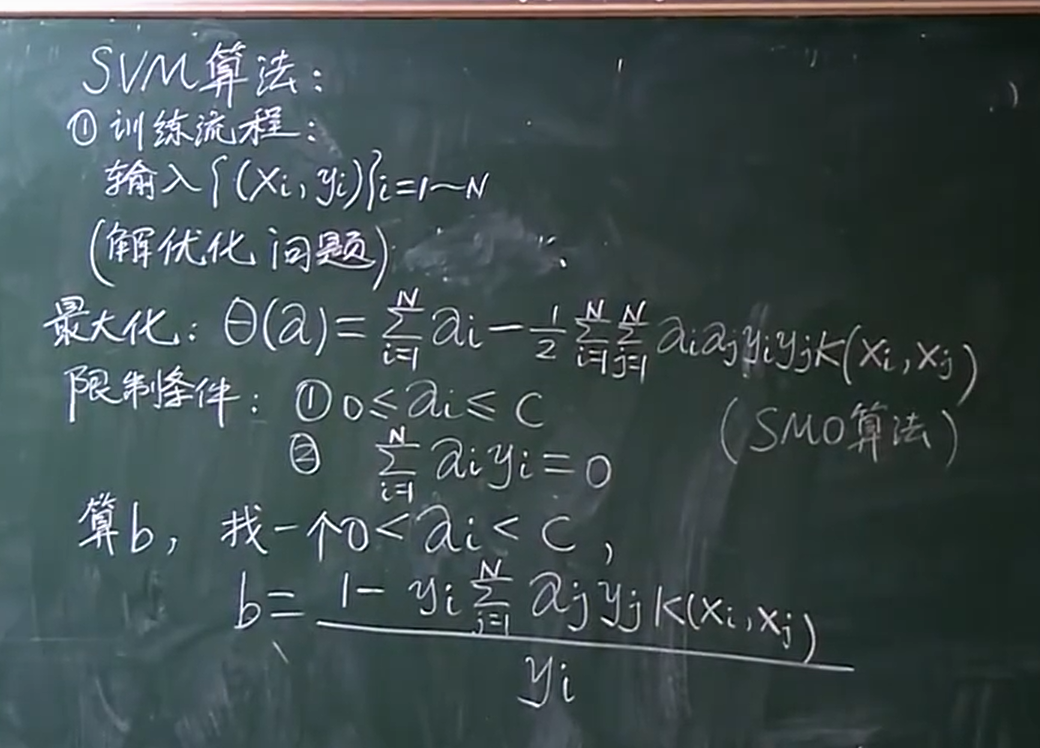 SVM算法:
①训练流程:
输入{(xi, yi)}i=1~N
(解优化问题):
最大化: θ(a)=∑_{i=1}^{N} ai - 1/2 ∑_{i=1}^{N} ∑_{j=1}^{N} ai aj yi yj K(xi, xj)
限制条件: ① 0≤ai≤C (SMO算法)
② ∑_{i=1}^{N} ai yi = 0
算b, 找一个0<ai<C,
b = (1 - yi ∑_{j=1}^{N} aj yj K(xi, xj)) / yi